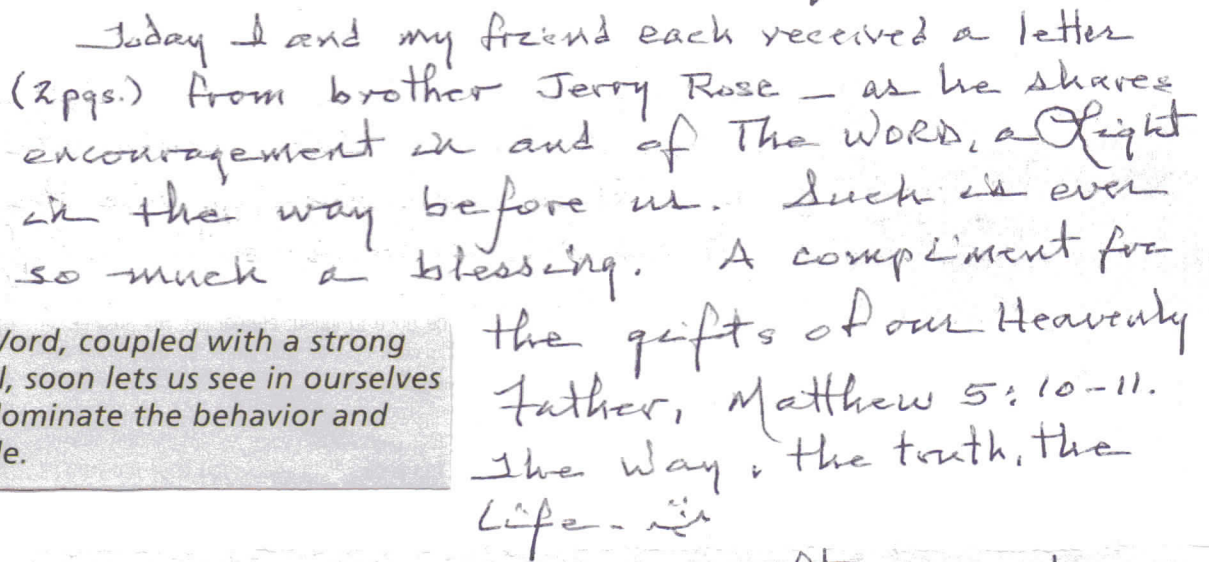 Today I and my friend each received a letter
(2pgs.) from brother Jerry Rose – as he shares
encouragement in and of The WORD, a Light
in the way before us. Such is ever
so much a blessing. A compliment for
the gifts of our Heavenly
Father, Matthew 5:10-11.
The Way, the truth, the
Life.
Word, coupled with a strong
l, soon lets us see in ourselves
dominate the behavior and
le.